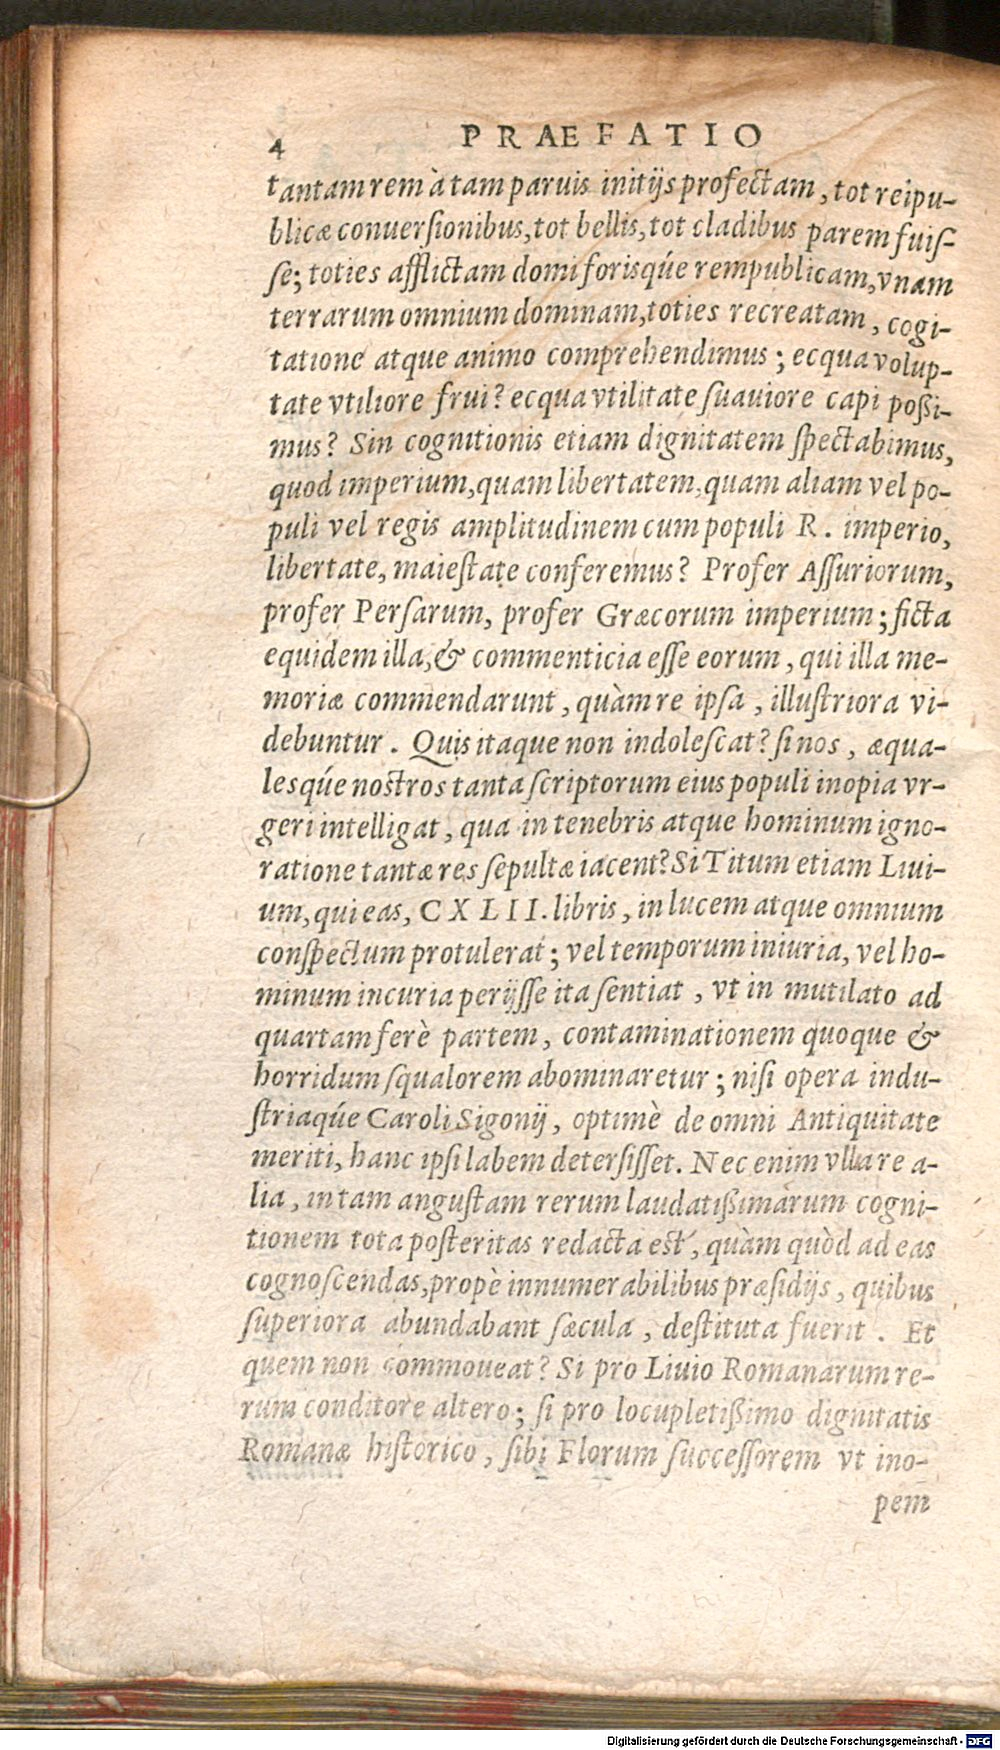 4 PRAEFATIO
tantam rem à tam paruis initijs profectam, tot reipu-
blicæ conuersionibus, tot bellis, tot cladibus parem fuis-
se; toties afflictam domi forisq́ue rempublicam, vnam
terrarum omnium dominam, toties recreatam, cogi-
tatione atque animo comprehendimus; ecqua volup-
tate vtiliore frui? ecqua vtilitate suauiore capi poßi-
mus? Sin cognitionis etiam dignitatem spectabimus,
quod imperium, quam libertatem, quam aliam vel po-
puli vel regis amplitudinem cum populi R. imperio,
libertate, maiestate conferemus? Profer Assuriorum,
profer Persarum, profer Græcorum imperium; ficta
equidem illa, & commenticia esse eorum, qui illa me-
moriæ commendarunt, quàm re ipsa, illustriora vi-
debuntur. Quis itaque non indolescat? si nos, æqua-
lesq́ue nostros tanta scriptorum eius populi inopia vr-
geri intelligat, qua in tenebris atque hominum igno-
ratione tantæ res sepultæ iacent? Si Titum etiam Liui-
um, qui eas, CXLII. libris, in lucem atque omnium
conspectum protulerat; vel temporum iniuria, vel ho-
minum incuria perijsse ita sentiat, vt in mutilato ad
quartam ferè partem, contaminationem quoque &
horridum squalorem abominaretur; nisi opera indu-
striaq́ue Caroli Sigonij, optimè de omni Antiquitate
meriti, hanc ipsi labem detersisset. Nec enim vlla re a-
lia, in tam angustam rerum laudatißimarum cogni-
tionem tota posteritas redacta est, quàm quòd ad eas
cognoscendas, propè innumerabilibus præsidijs, quibus
superiora abundabant sæcula, destituta fuerit. Et
quem non commoueat? Si pro Liuio Romanarum re-
rum conditore altero; si pro locupletißimo dignitatis
Romanæ historico, sibi Florum successorem vt ino-
pem
Digitalisierung gefördert durch die Deutsche Forschungsgemeinschaft - DFG